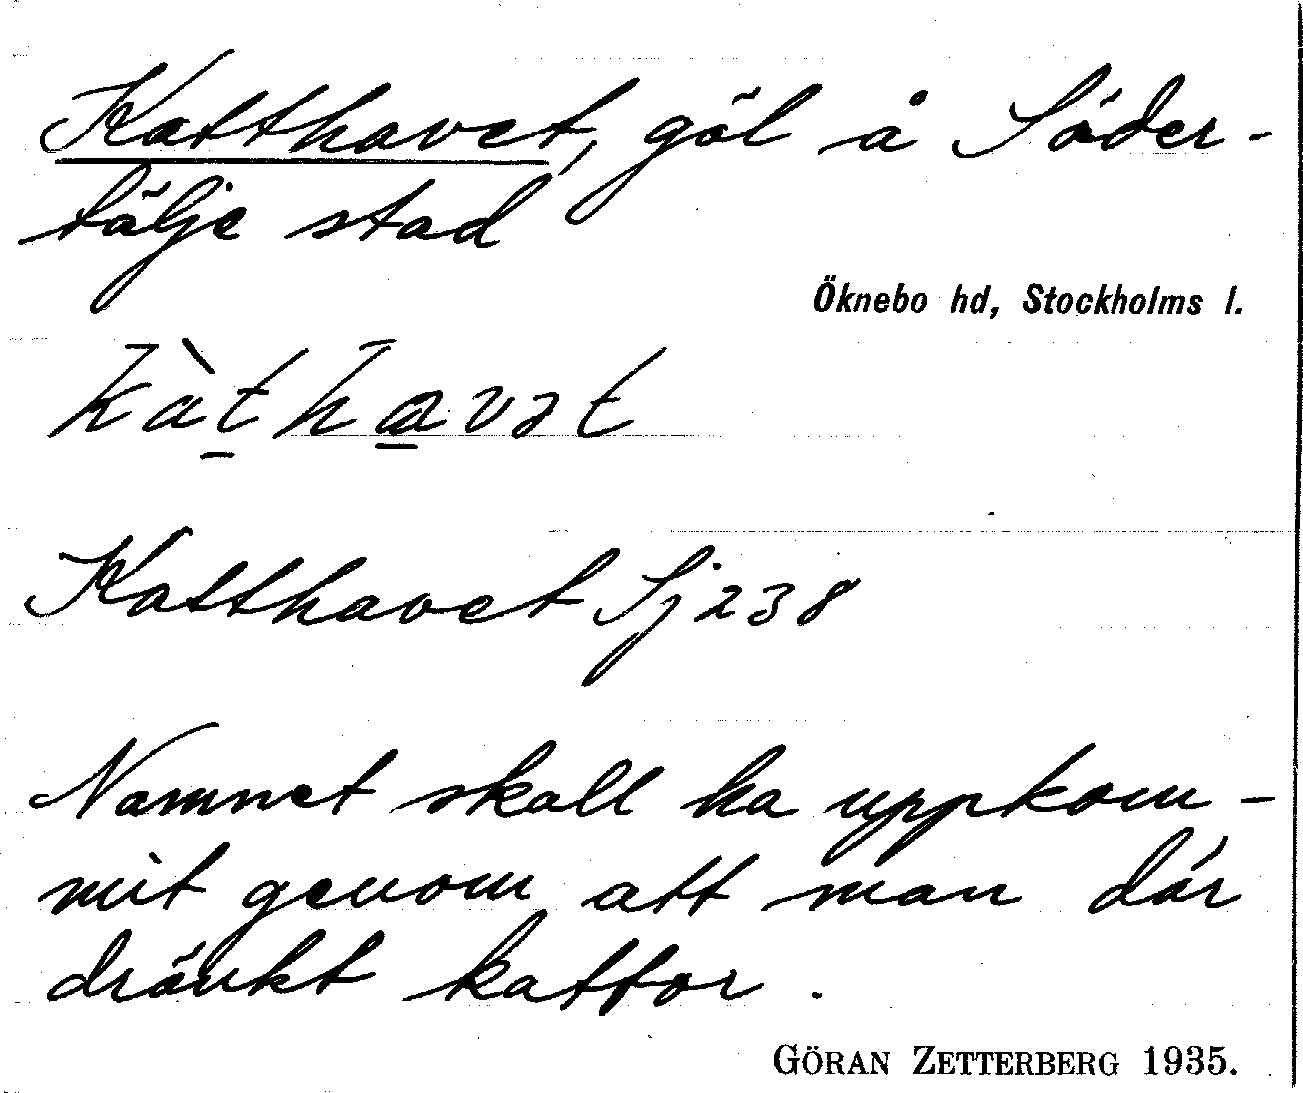 Katthavet, göl å Söder-
tälje stad
Öknebo hd, Stockholms l.
kàt̠ha̠vət
Katthavet Sj 238
Namnet skall ha uppkom-
mit genom att man där
dränkt kattor.
GÖRAN ZETTERBERG 1935.